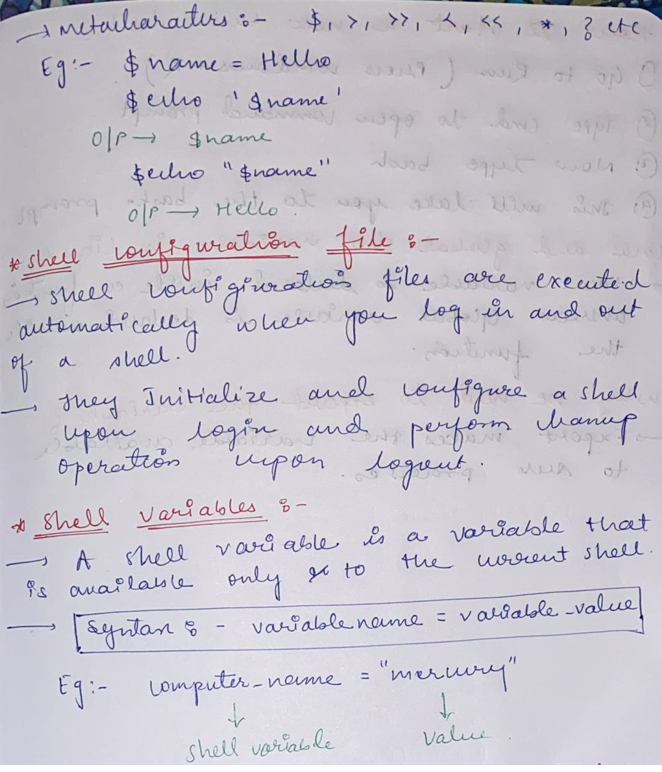 → metacharacters :- $, >, >>, <, <<, *, ; etc
Eg:- $ name = Hello
$echo '$name'
O/P → $name
$echo "$name"
O/P → Hello.
* shell configuration file :-
→ shell configuration files are executed
automatically when you log in and out
of a shell.
→ They Initialize and configure a shell
upon login and perform cleanup
operation upon logout.
* Shell variables :-
→ A shell variable is a variable that
is available only to the current shell.
→ Syntax :- variable name = variable_value
Eg:- computer_name = "mercury"
↓ ↓
shell variable value.